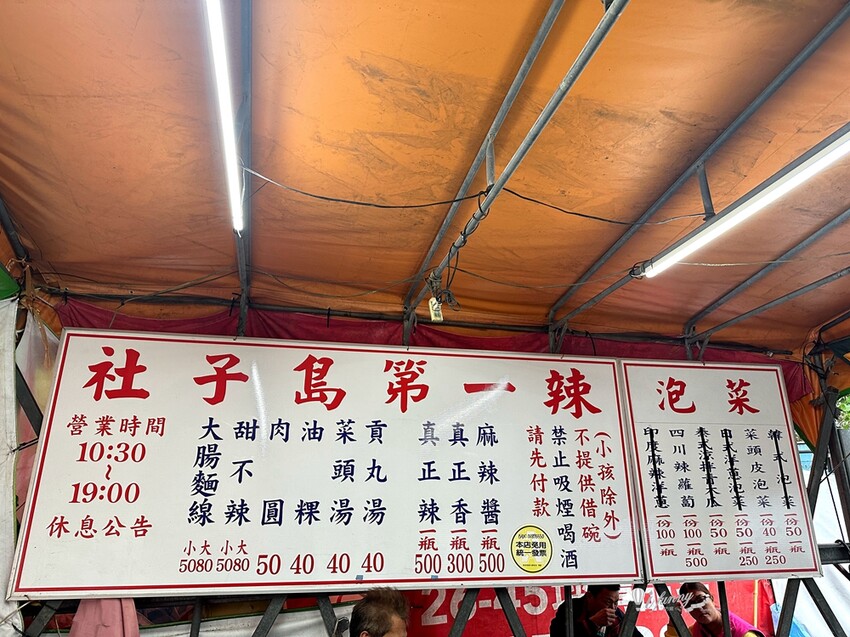 社子島第一辣
營業時間
10:30
~
19:00
休息公告
(小孩除外)
不提供借碗
禁止吸煙喝酒
請先付款
麻辣醬 一瓶 500
真正香 一瓶 300
真正辣 一瓶 500
貢丸湯 40
菜頭湯 40
油粿 40
肉圓 50
甜不辣 小大 5080
大腸麵線 小大 5080
本店免用
統一發票
泡菜
韓式泡菜 一份 50
菜頭皮泡菜 一份 40 一瓶 250
日式洋蔥泡菜 一份 50 一瓶 250
泰式涼拌青木瓜 一份 50
四川辣蘿蔔 一份 100 一瓶 500
印度麻辣洋蔥 一份 100